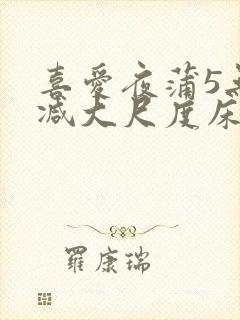 喜愛夜蒲5無
减大尺度床
羅康瑞